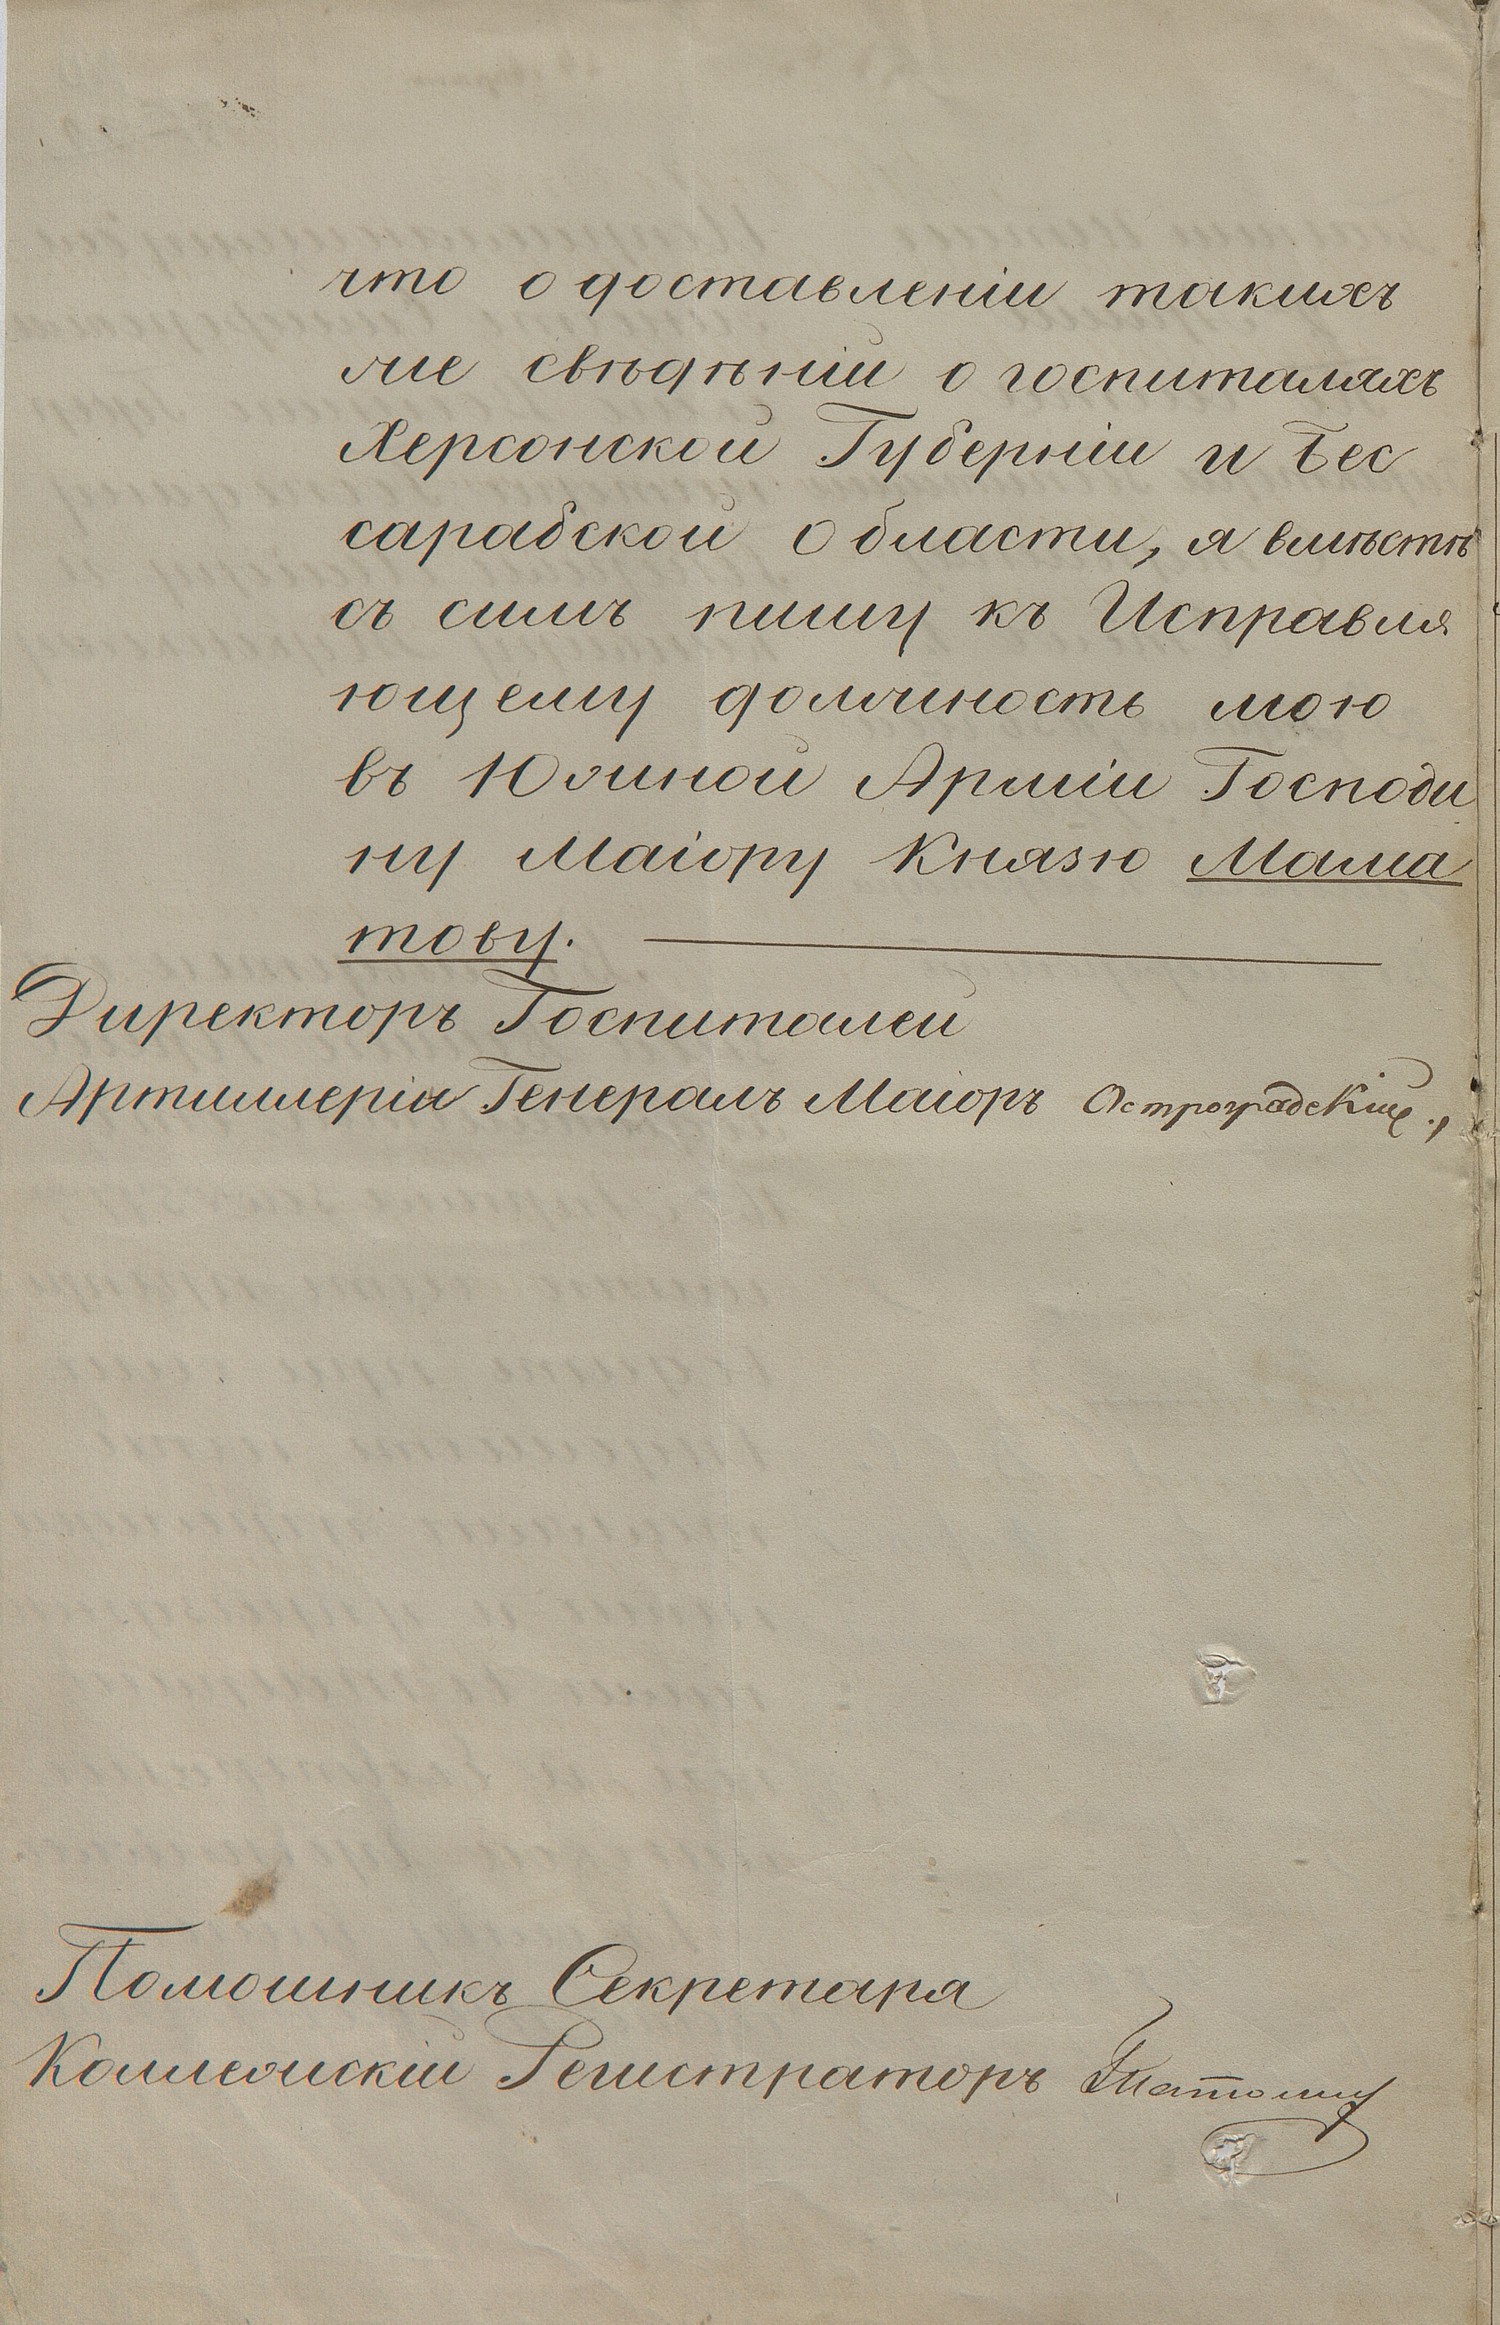 что о доставленіи такихъ
же свѣдѣній о госпиталяхъ
Херсонской Губерніи и Бес
сарабской Области, я вмѣстѣ
съ симъ пишу къ Исправля
ющему должность мою
въ Южной Арміи Господи
ну Маіору Князю Мама
тову.
Директоръ Госпиталей
Артиллеріи Генералъ Маіоръ Остроградскій.,
Помошникъ Секретаря
Коллежскій Регистраторъ